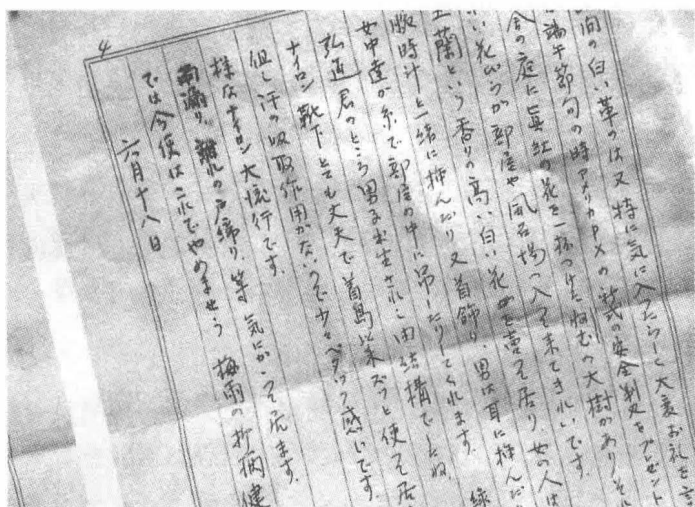 4
間の白い革のは又特に気に入つたらしく大変お礼を言
端午節句の時アメリカPXの試の安全剃刀をプレゼント
舎の庭に真紅の花を一杯つけたねむの大樹がありそれ
い花びらが部屋や風呂場へ入つて来てきれいです。
玉蘭という香りの高い白い花 を売つて居り 女の人は
腕時計と一緒に挿んだり 又首飾り、男は耳に挿んだ
女中達が糸で部屋の中に吊したりしてくれます。 緑
弘道君のところ男子お生れの由結構でしたね。
ナイロン靴下 とても丈夫で 首島以来ズッと使つて居
但し汗の吸取作用がないので少々ベタつく感じです。
様なナイロン大流行です。
雨漏り、離れの戸締り、等 気にかゝつて居ます。
では今便はこれでやめませう 梅雨の折柄 健
六月十八日